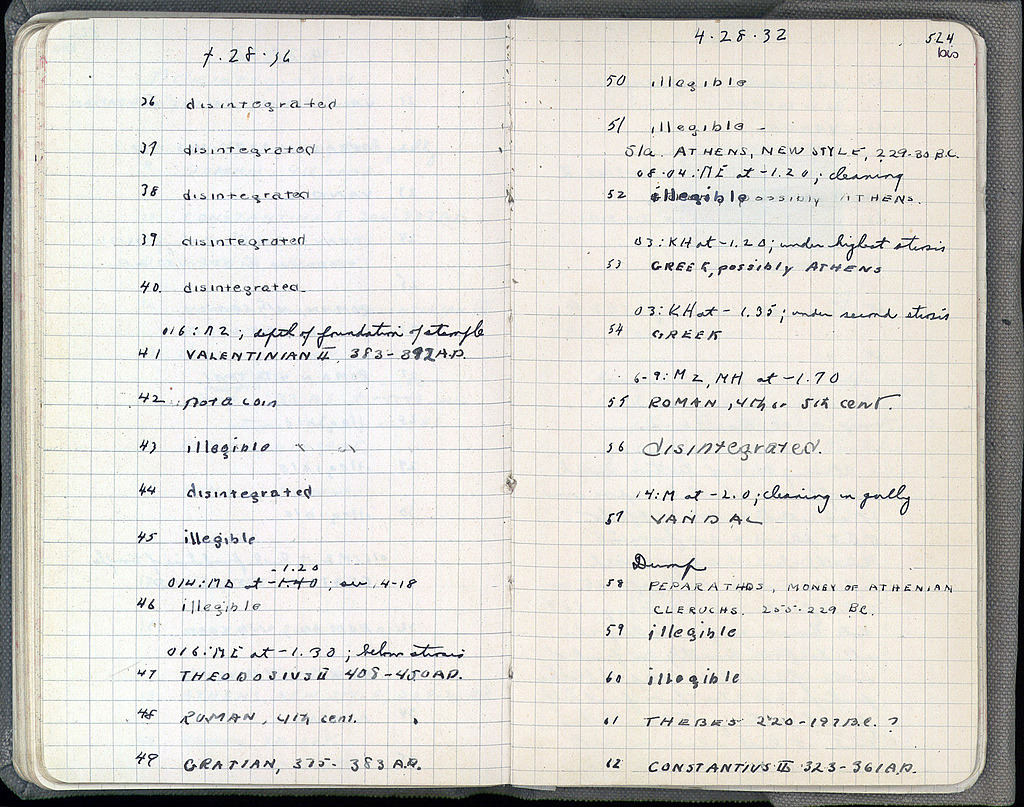 4.28.36
36 disintegrated
37 disintegrated
38 disintegrated
39 disintegrated
40. disintegrated
016: ; depth of foundation of temple
41 VALENTINIAN II, 383-392 A.D.
42 not a coin
43 illegible
44 disintegrated
45 illegible
-1.20
014: at -1.40; 4-18
46 illegible
016: ME at -1.30; below
47 THEODOSIUS II 408-450 A.D.
48 ROMAN, 4th cent.
49 GRATIAN, 375-383 A.D.
4.28.32
524
50 illegible
51 illegible -
51a. ATHENS, NEW STYLE, 229-30 B.C.
08-04: ME at -1.20; cleaning
52 illegible possibly ATHENS.
03: KH at -1.20; under highest
53 GREEK, possibly ATHENS
03: KH at -1.35; under second
54 GREEK
6-9: MZ, MH at -1.70
55 ROMAN, 4th or 5th cent.
56 disintegrated.
14: M at -2.0; cleaning in gully
57 VANDAL
Dump
58 PEPARATHOS, MONEY OF ATHENIAN
CLERUCHS. 255-229 B.C.
59 illegible
60 illegible
61 THEBES 220-197 B.C. ?
62 CONSTANTIUS II 323-361 A.D.